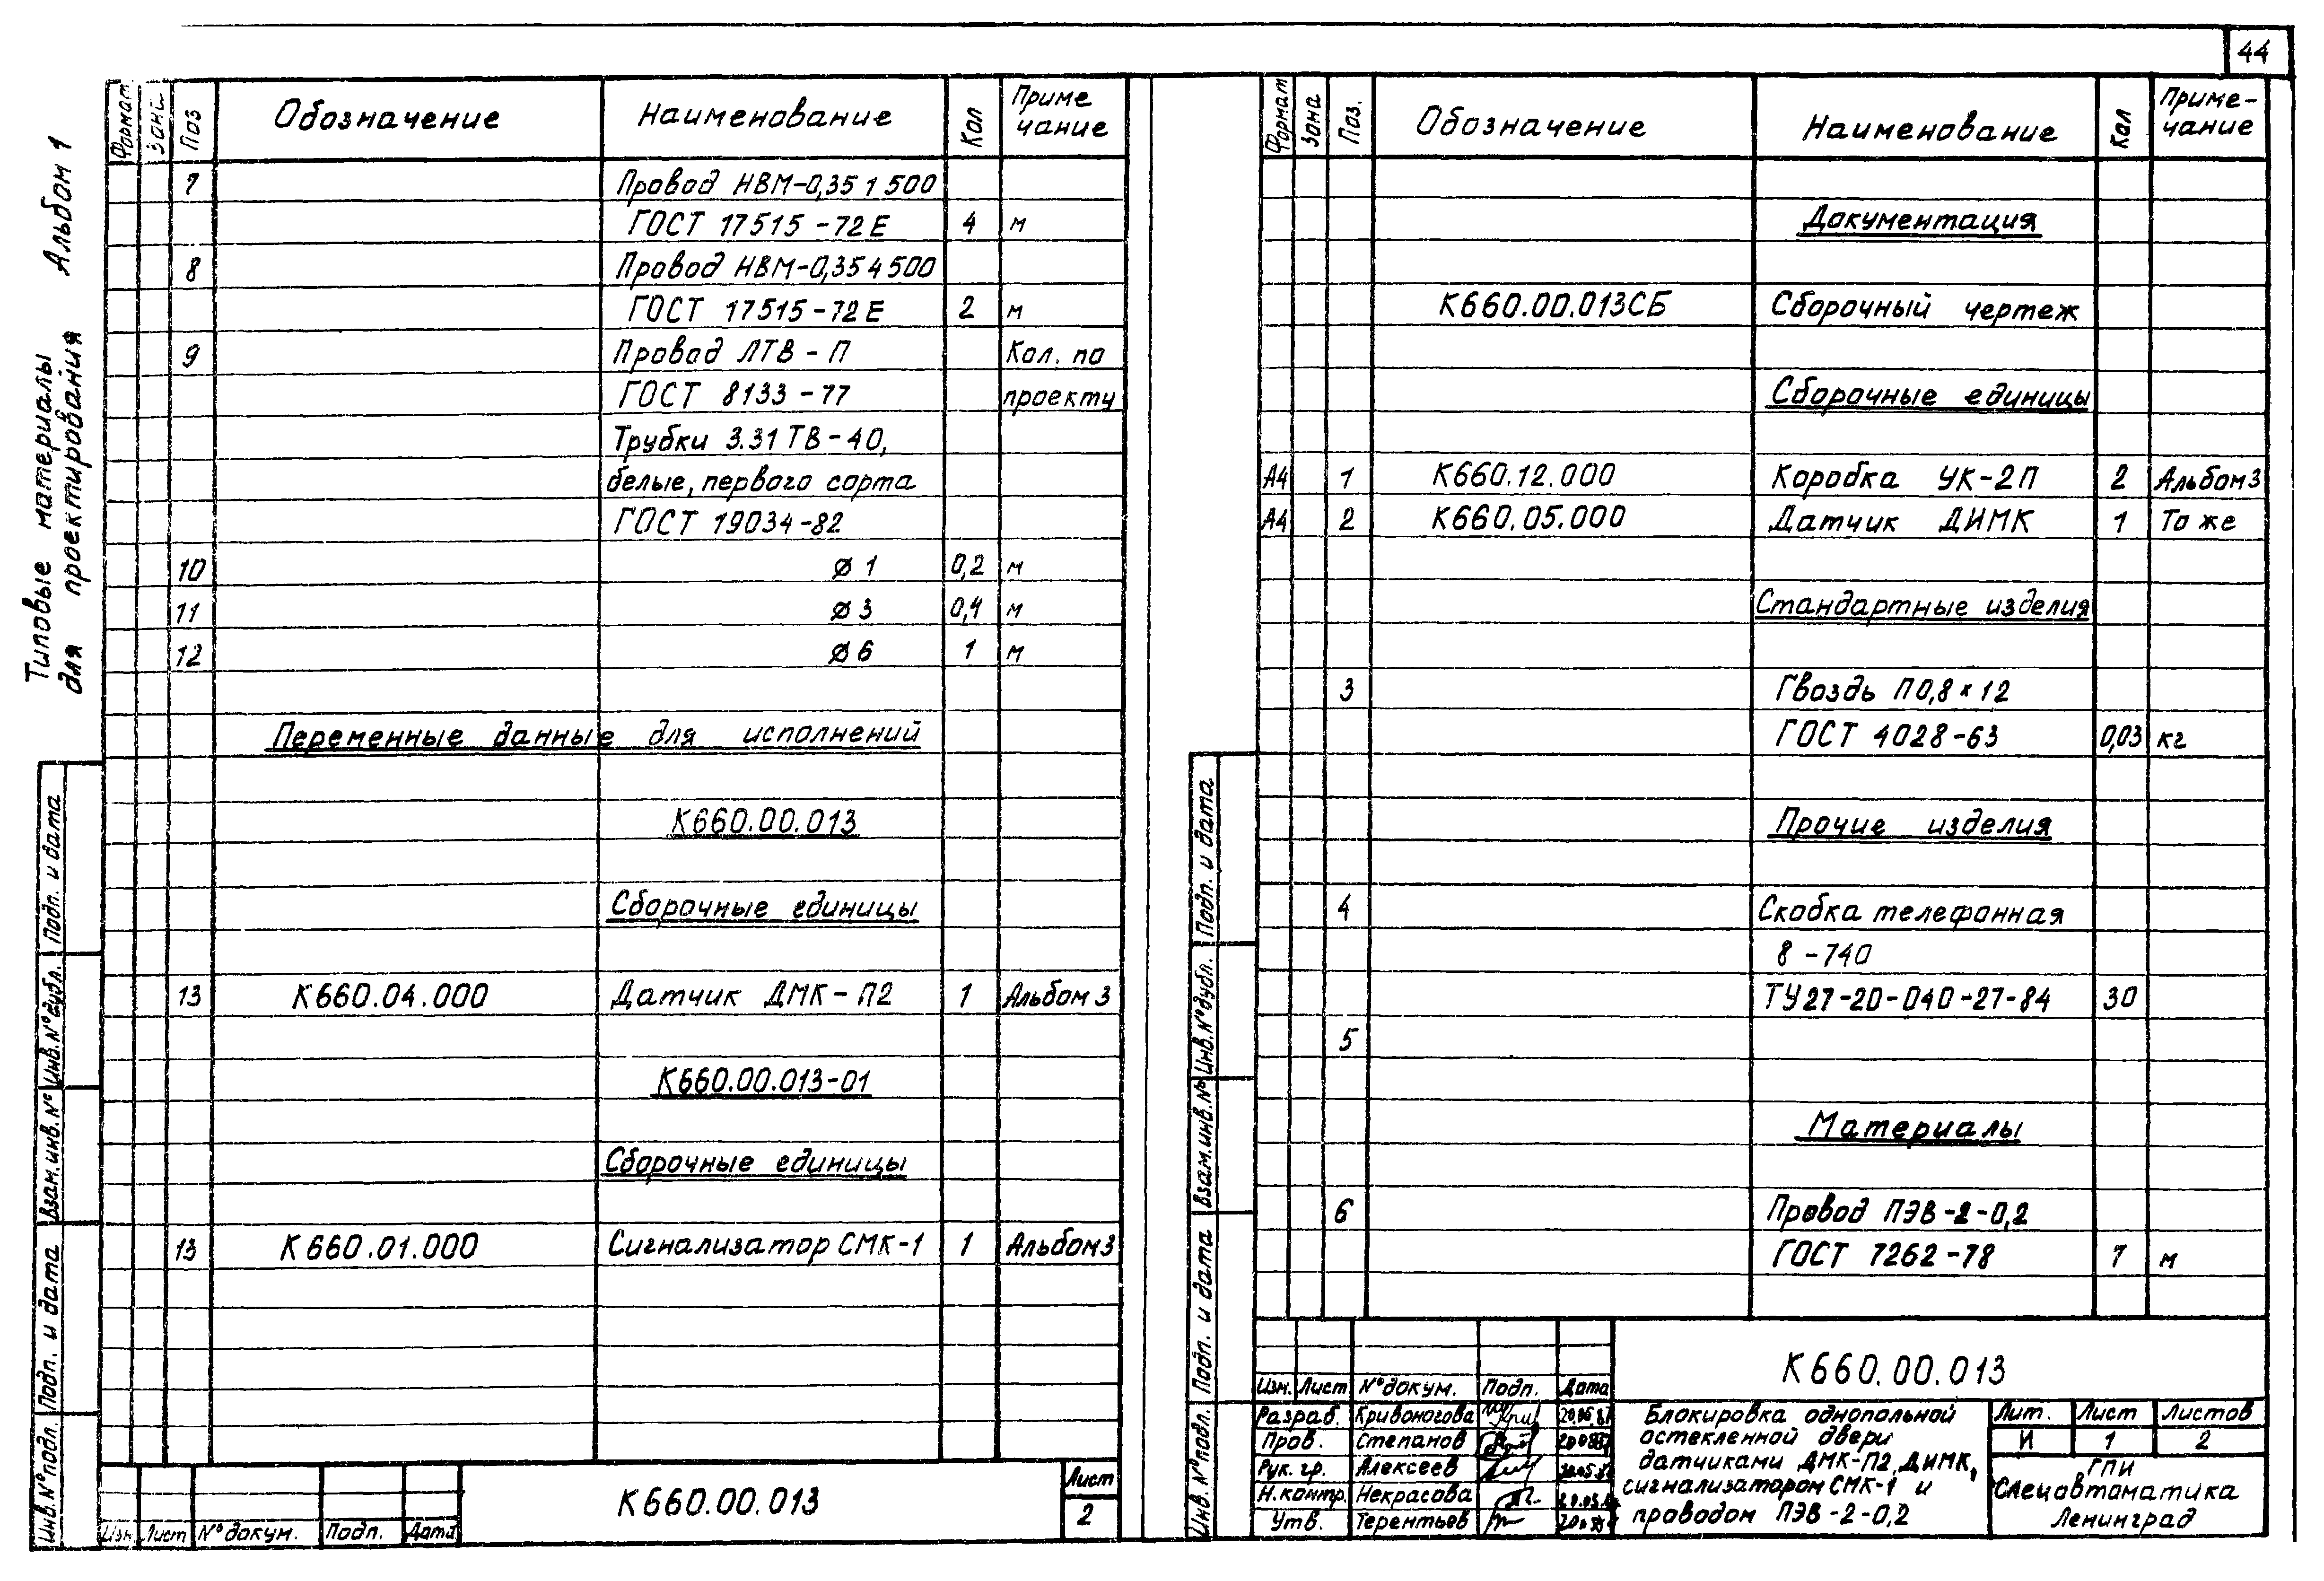 44
Типовые материалы
для проектирования Альбом 1
Формат Зона Поз Обозначение Наименование Кол Приме
чание
7 Провод НВМ-0,35 1 500
ГОСТ 17515-72Е 4 м
8 Провод НВМ-0,35 4 500
ГОСТ 17515-72Е 2 м
9 Провод ЛТВ-П Кол. по
ГОСТ 8133-77 проекту
Трубки 3.31 ТВ-40,
белые, первого сорта
ГОСТ 19034-82
10 ø 1 0,2 м
11 ø 3 0,4 м
12 ø 6 1 м
Переменные данные для исполнений
К660.00.013
Сборочные единицы
13 К660.04.000 Датчик ДМК-П2 1 Альбом 3
К660.00.013-01
Сборочные единицы
13 К660.01.000 Сигнализатор СМК-1 1 Альбом 3
Подп. и дата
Инв. № дубл.
Взам. инв. №
Подп. и дата
Инв. № подл.
Изм Лист № докум. Подп. Дата
К660.00.013
Лист
2
Формат Зона Поз. Обозначение Наименование Кол Приме-
чание
Документация
К660.00.013СБ Сборочный чертеж
Сборочные единицы
А4 1 К660.12.000 Коробка УК-2П 2 Альбом 3
А4 2 К660.05.000 Датчик ДИМК 1 То же
Стандартные изделия
3 Гвоздь П 0,8×12
ГОСТ 4028-63 0,03 кг
Прочие изделия
4 Скобка телефонная
8-740
ТУ27-20-040-27-84 30
5
Материалы
6 Провод ПЭВ-2-0,2
ГОСТ 7262-78 7 м
Подп. и дата
Инв. № дубл.
Взам. инв. №
Подп. и дата
Инв. № подл.
К660.00.013
Изм. Лист № докум. Подп. Дата
Разраб. Кривоногова
Пров. Степанов
Рук. гр. Алексеев
Н. контр. Некрасова
Утв. Терентьев
Блокировка однопольной
остекленной двери
датчиками ДМК-П2, ДИМК,
сигнализатором СМК-1 и
проводом ПЭВ-2-0,2
Лит. Лист Листов
И 1 2
ГПИ
Спецавтоматика
Ленинград